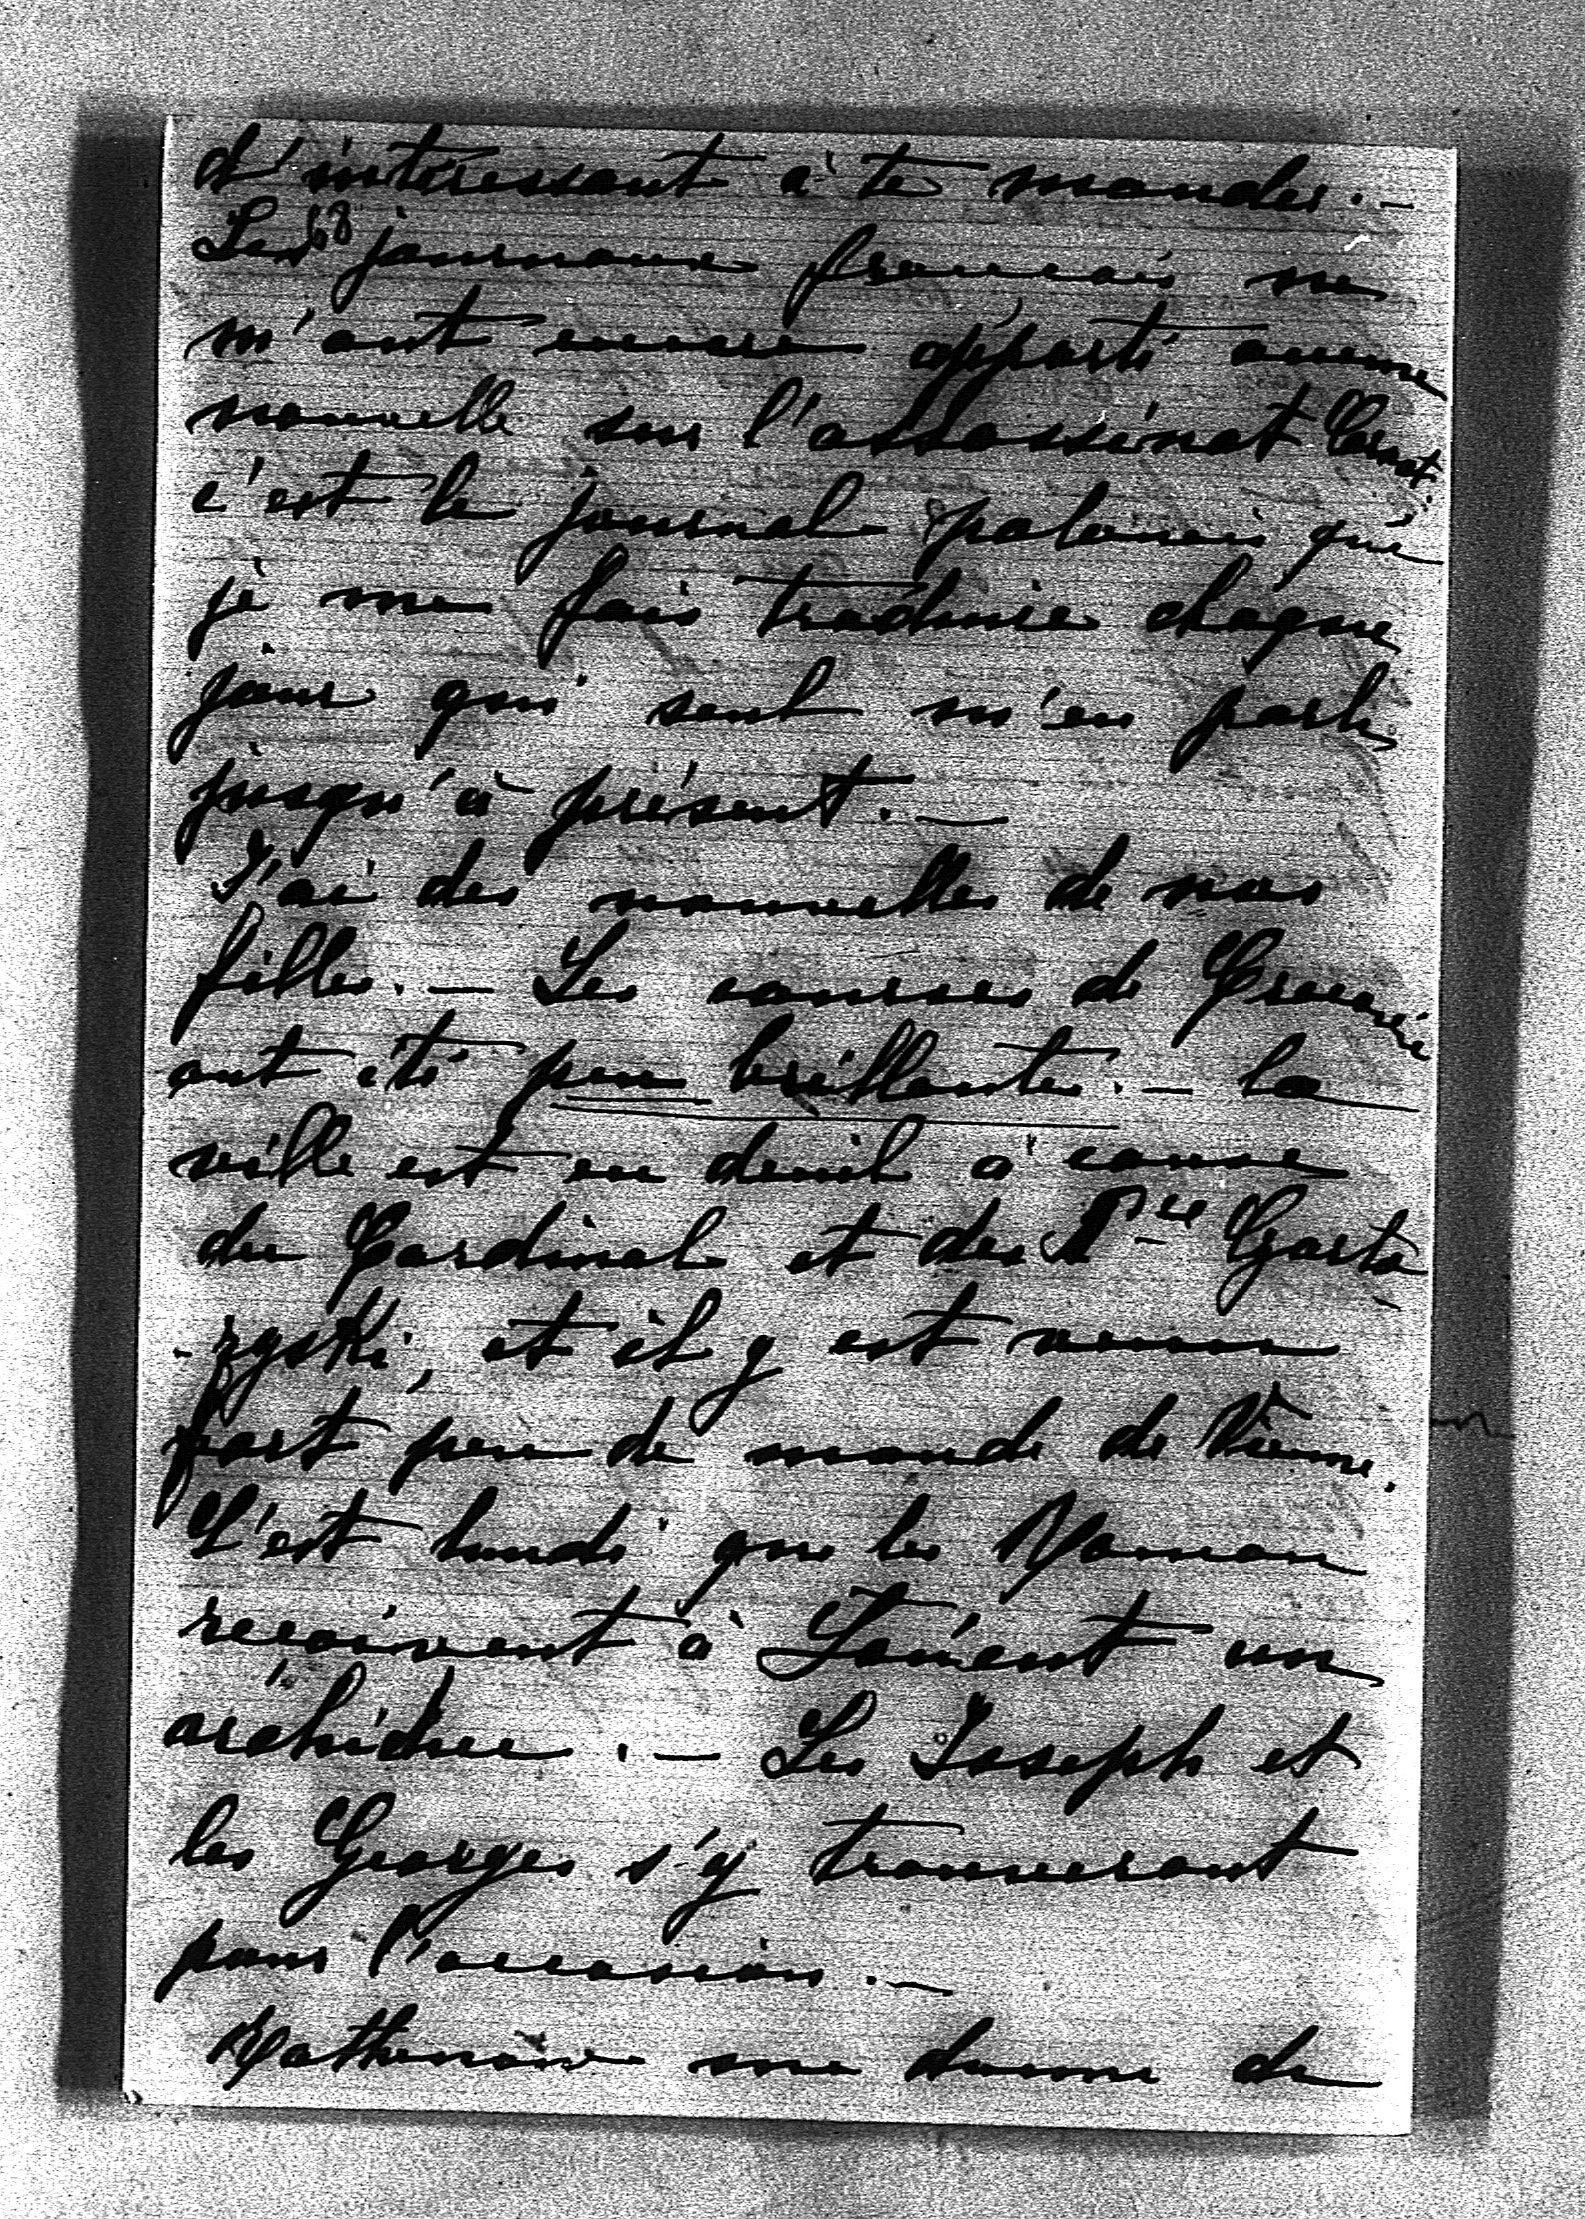 d'intéressant à te mander. —
Les 68 journaux français ne
m'ont encore apporté aucune
nouvelle sur l'assassinat Carnot.
c'est le journal polonais que
je me fais traduire chaque
jour qui seul m'en parle
jusqu'à présent. —
J'ai des nouvelles de nos
filles. — Les courses de Cracovie
ont été peu brillantes. — la
ville est en deuil à cause
du Cardinal et des Pce Czarto
-ryski, et il y est venu
fort peu de monde de Vienne.
C'est lundi que les Roman
reçoivent à Łańcut un
archiduc. — Les Joseph et
les Georges s'y trouveront
pour l'occasion. —
me donne de